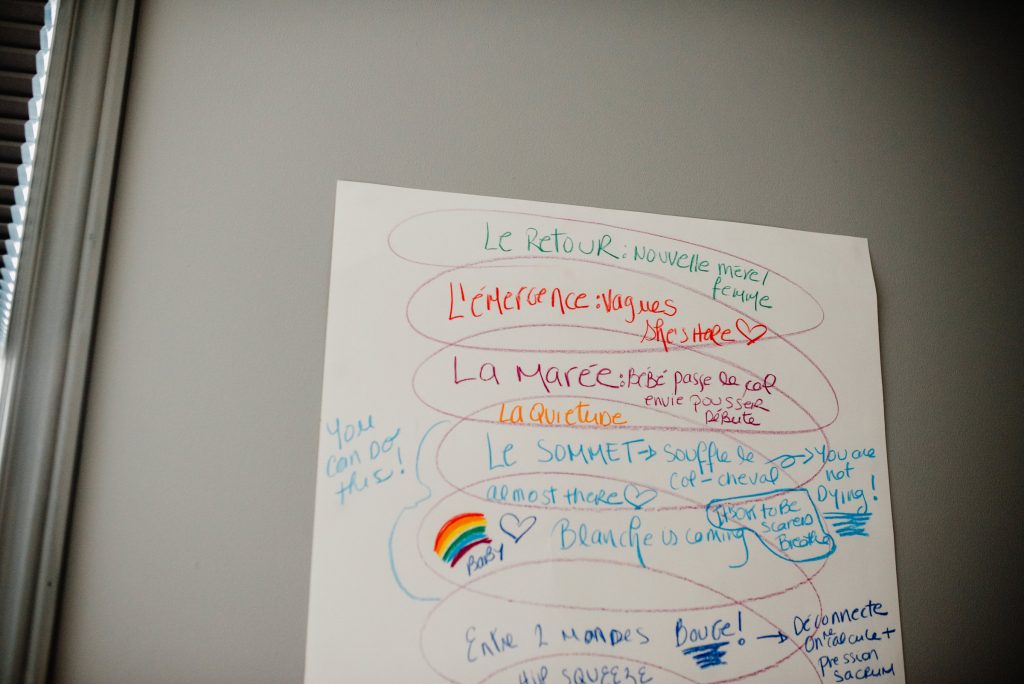 Le Retour : nouvelle mère/
femme
L'émergence : vagues
She's Here ♡
La Marée : Bébé passe le col
envie pousser
débute
La Quietude
You
can do
this!
Le SOMMET → souffle de
col-cheval
→ You are
not
Dying!
almost there ♡
It's ok to be
scared
Breathe
Blanche is coming
BABY
Entre 2 mondes Bouge! →
Déconnecte
On calcule +
pression
sacrum
HIP SQUEEZE